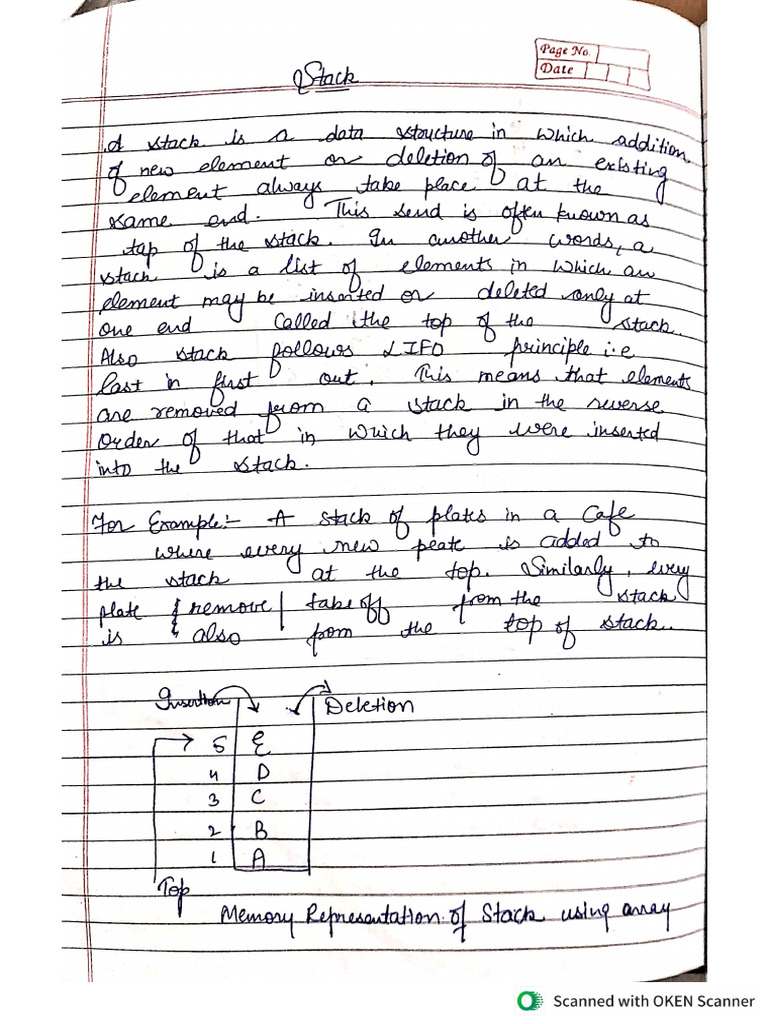 Page No.
Date
Stack
A stack is a data structure in which addition
of new element or deletion of an existing
element always take place at the
same end. This send is often known as
tap of the stack. In another words, a
stack is a list of elements in which an
element may be inserted or deleted only at
one end called the top of the stack.
Also stack follows LIFO principle i.e
last in first out. This means that elements
are removed from a stack in the reverse
order of that in which they were inserted
into the stack.
For Example:- A stack of plates in a Cafe
where every new peate is added to
the stack at the top. Similarly, every
plate { remove | take off from the stack
is { also from the top of stack.
Insertion Deletion
5 E
4 D
3 C
2 B
1 A
Top
Memory Representation of Stack using array
Scanned with OKEN Scanner